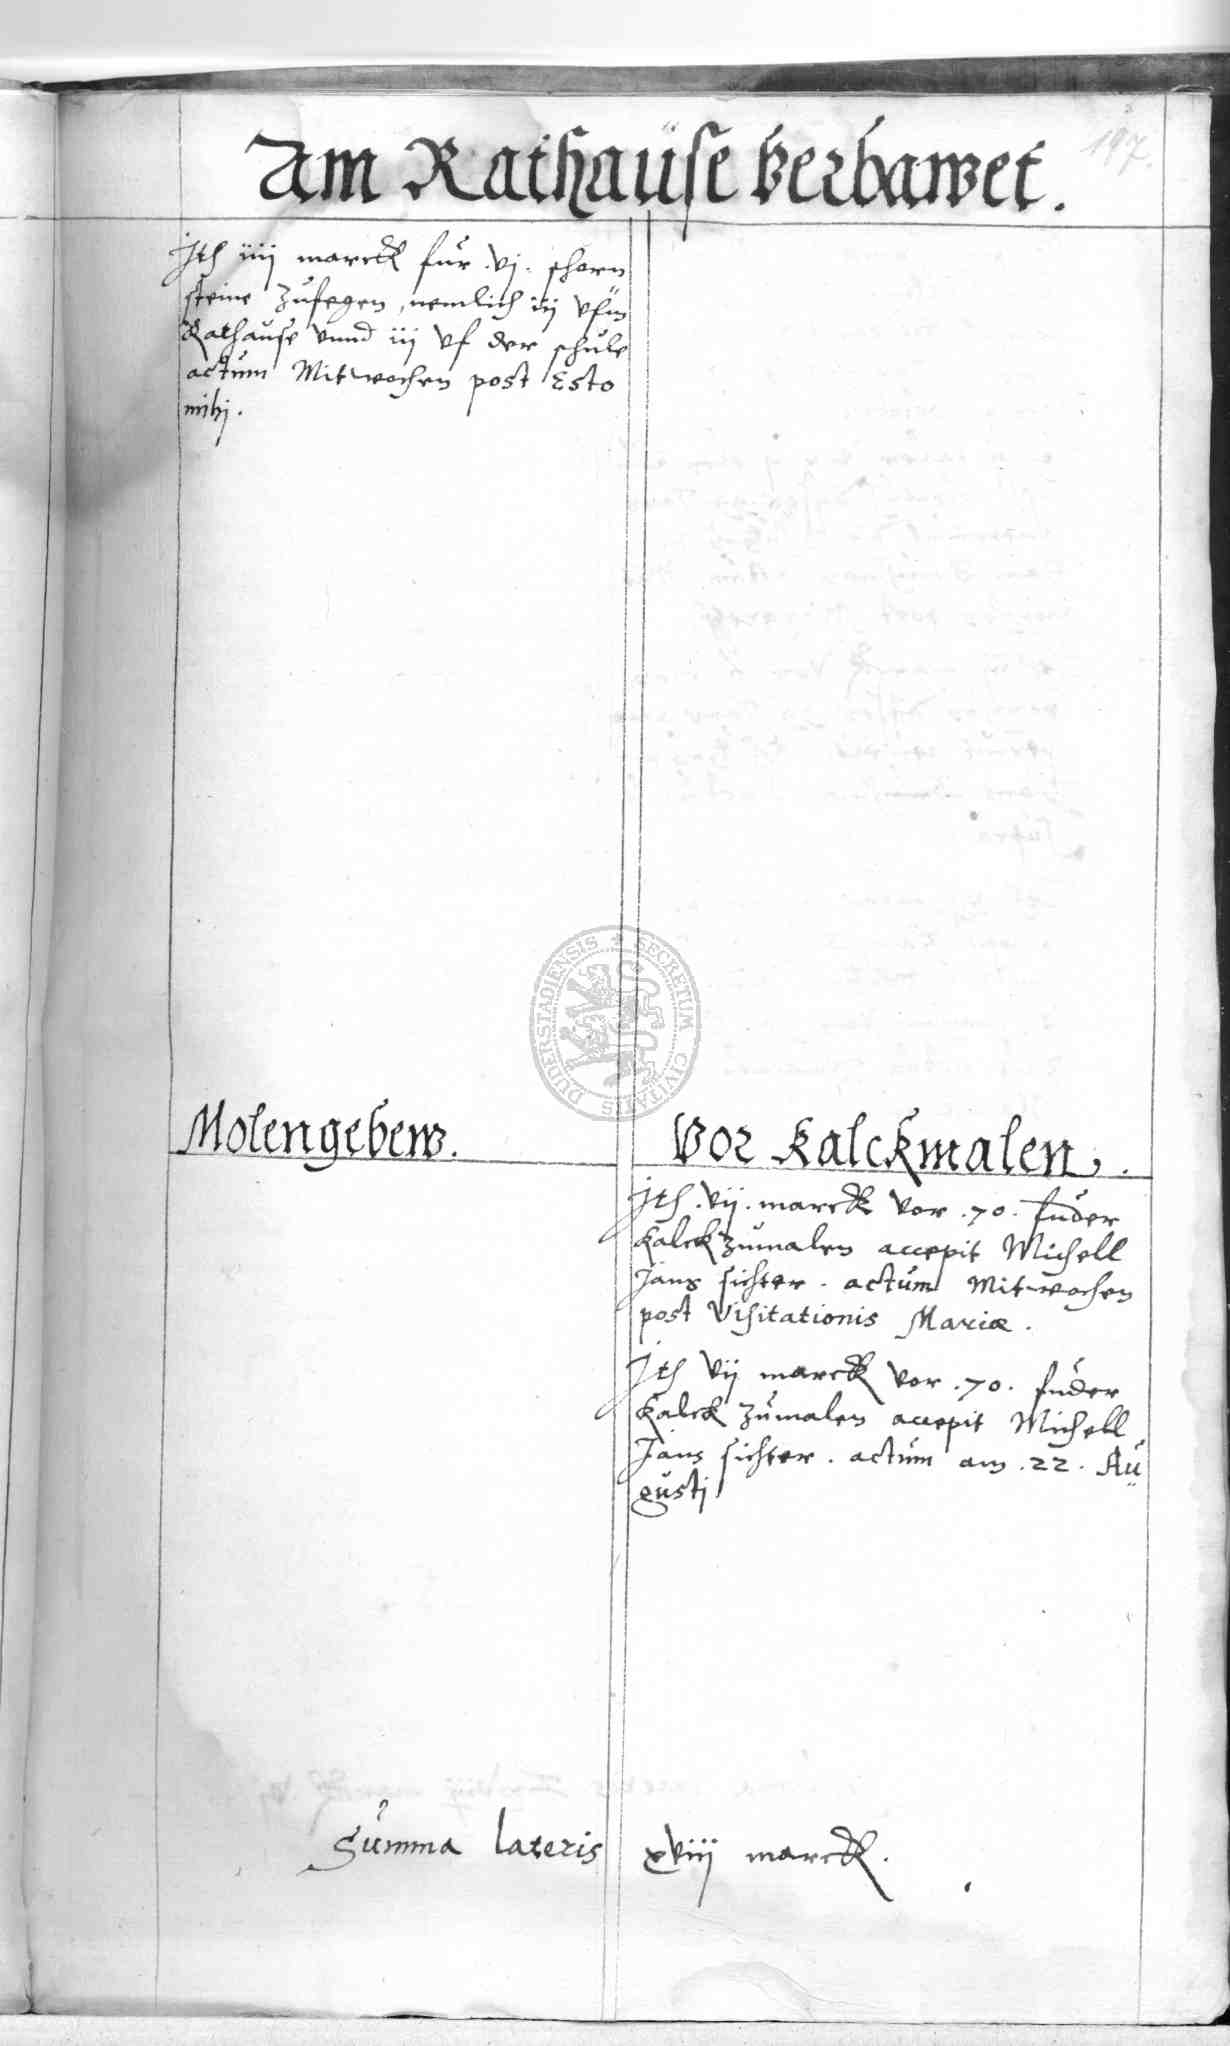 197.
Am Rathause verbawet.
Jtem iiij marck fur .vj. schorn
steine zufegen, nemlich iij vfm
Rathause vnnd iij vf der schule
actum Mitwochen post Esto
mihj.
Molengebew.
Vor Kalckmalen.
Jtem .vij. marck vor .70. fuder
kalck zumalen accepit Michell
Jans sichter. actum Mitwochen
post Visitationis Mariæ.
Jtem vij marck vor .70. fuder
kalck zumalen accepit Michell
Jans sichter. actum am .22. Au
gustj
Summa lateris xviij marck.
SECRETUM CIVITATIS DUDERSTADIENSIS